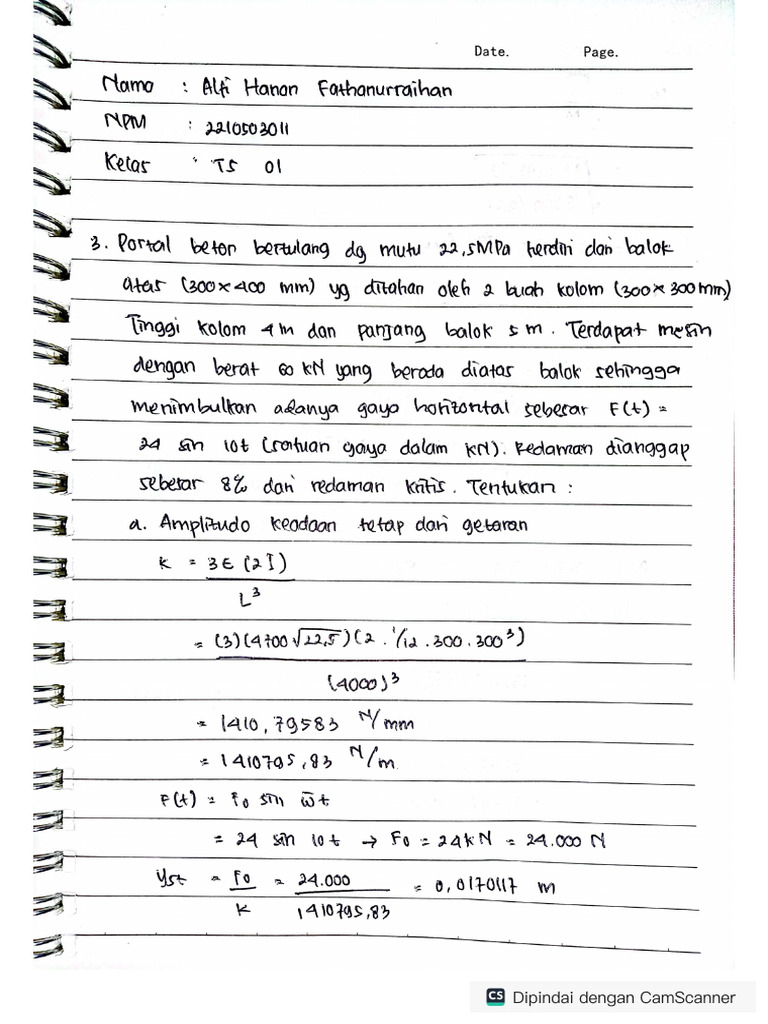 Date. Page.
Nama : Alfi Hanan Fathanurraihan
NPM : 2210503011
Kelas : TS 01
3. Portal beton bertulang dg mutu 22,5MPa terdiri dari balok
atas (300 × 400 mm) yg ditahan oleh 2 buah kolom (300 × 300 mm)
Tinggi kolom 4 m dan panjang balok 5 m. Terdapat mesin
dengan berat 60 kN yang berada diatas balok sehingga
menimbulkan adanya gaya horizontal sebesar F(t) =
24 sin 10t (satuan gaya dalam kN). Redaman dianggap
sebesar 8% dari redaman kritis. Tentukan :
a. Amplitudo keadaan tetap dari getaran
K = 3E (2I)
L³
= (3)(4700 √22,5)(2 . 1/12 . 300 . 300³)
(4000)³
= 1410,79583 N/mm
= 1410795,83 N/m
F(t) = F0 sin ω̅t
= 24 sin 10t → F0 = 24 kN = 24.000 N
Yst = F0 = 24.000 = 0,0170117 m
K 1410795,83
CS Dipindai dengan CamScanner